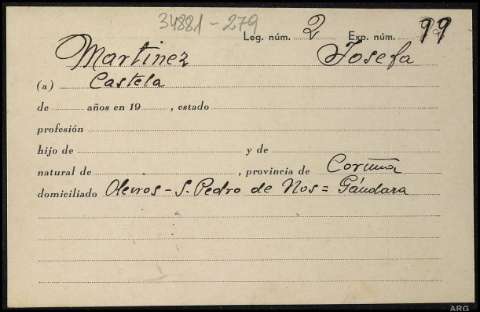 34881-279
Leg. núm. 2 Exp. núm. 99
Martinez Josefa
(a) Castela
de años en 19 , estado
profesión
hijo de y de
natural de , provincia de Coruña
domiciliado Oleiros - S. Pedro de Nos = Gándara
ARG